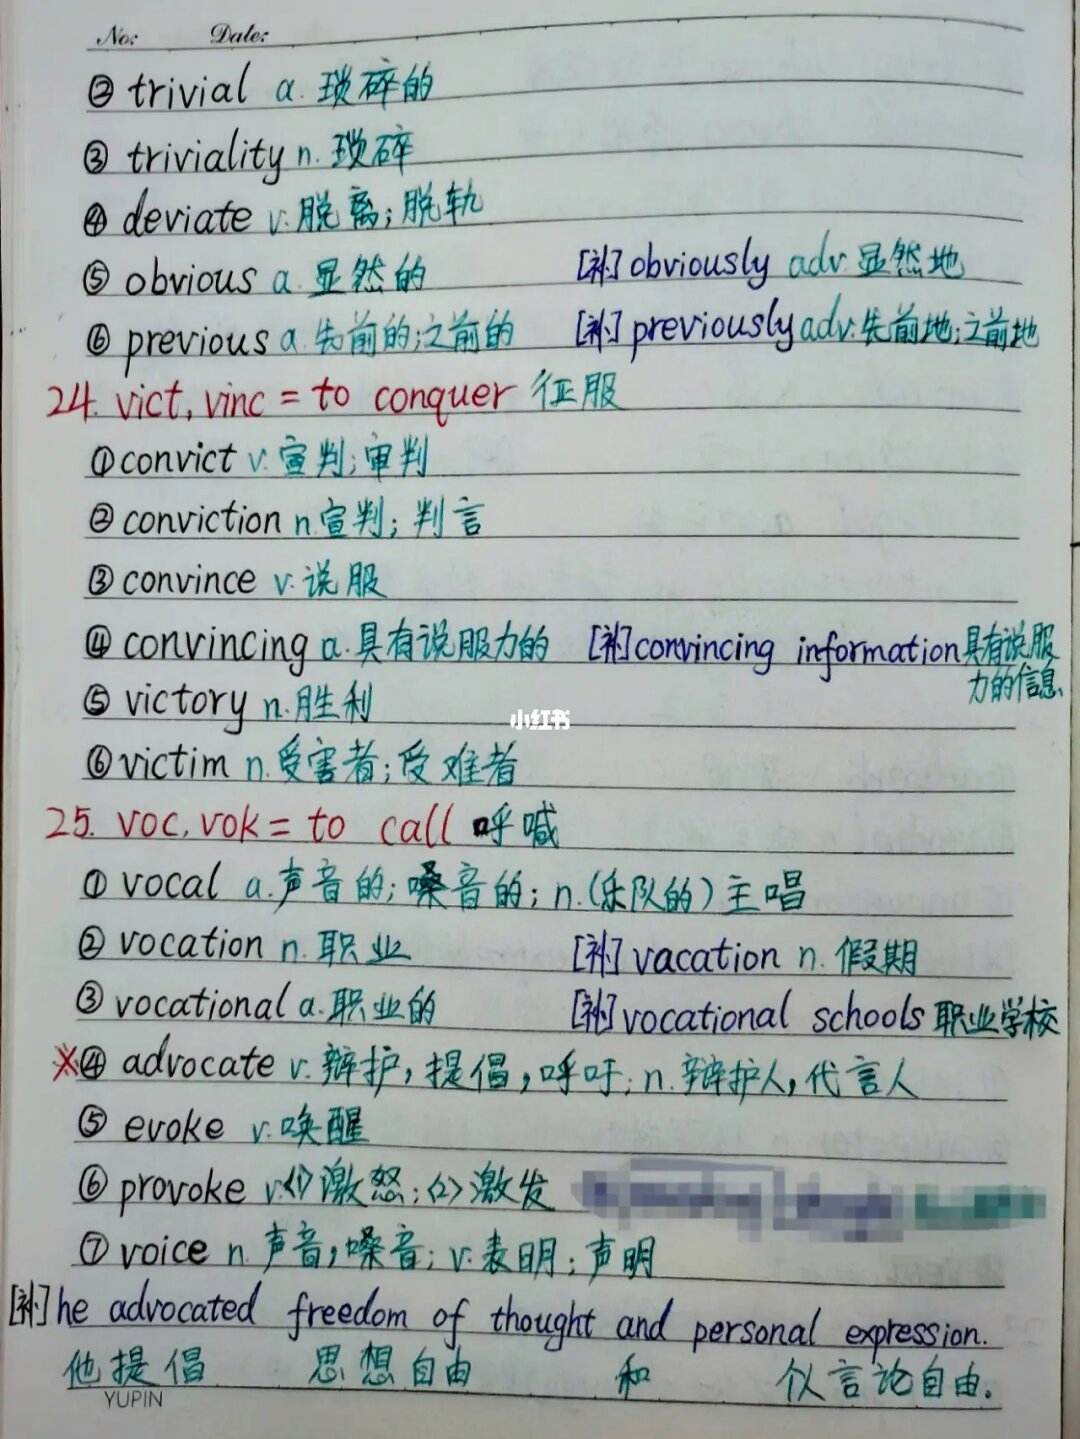 No:   Date:
② trivial a. 琐碎的
③ triviality n. 琐碎
④ deviate v. 脱离;脱轨
⑤ obvious a. 显然的 [补] obviously adv. 显然地
⑥ previous a. 先前的;之前的 [补] previously adv. 先前地;之前地
24. vict, vinc = to conquer 征服
① convict v. 宣判;审判
② conviction n. 宣判;判言
③ convince v. 说服
④ convincing a. 具有说服力的 [补] convincing information 具有说服
力的信息
⑤ victory n. 胜利
小红书
⑥ victim n. 受害者;受难者
25. voc, vok = to call 呼喊
① vocal a. 声音的;嗓音的; n. (乐队的)主唱
② vocation n. 职业 [补] vacation n. 假期
③ vocational a. 职业的 [补] vocational schools 职业学校
※④ advocate v. 辩护,提倡,呼吁; n. 辩护人,代言人
⑤ evoke v. 唤醒
⑥ provoke v. <1>激怒; <2>激发
⑦ voice n. 声音,嗓音; v. 表明;声明
[补] he advocated freedom of thought and personal expression.
他提倡 思想自由 和 个人言论自由.
YUPIN